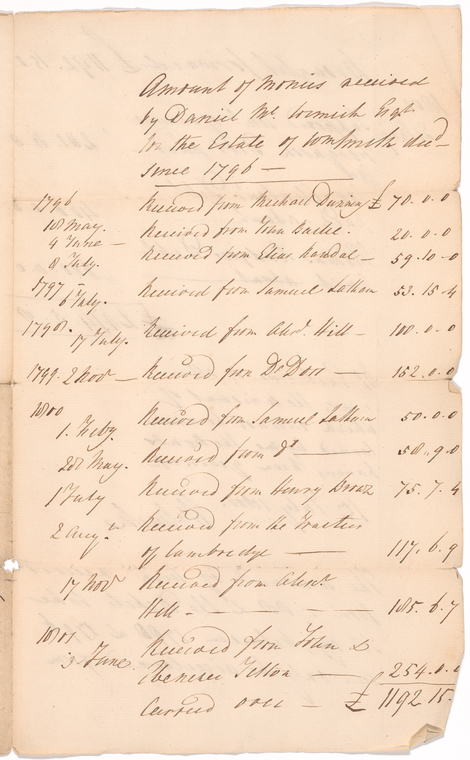 Amount of Monies received
by Daniel Mc. Cormick Esqr
for the Estate of Wm Smith decd
since 1796 —
1796
18 May. Received from Michael Dunning £ 70.0.0
9 June — Received from John 20.0.0
8 July. Received from Elias Randal — 59.10-0
1797
6 July. Received from Samuel 53.15-4
1798.
17 July. Received from Alexr. Hill — 100.0-0
1799. 2 Novr — Received from Dr Doss — 152.0.0
1800
1. Feby. Received from Samuel 50.0.0
28 May. Received from Do — 58.9.0
1 July Received from Henry 75.7.4
2 Augt. Received from the Trustees
of Cambridge — 117.6.9
17 Novr Received from Alexr.
Hill — 185.6.7
1801
3 June. Received from John &
Ebenezer — 254.0.0
Carried over — £ 1192.15.